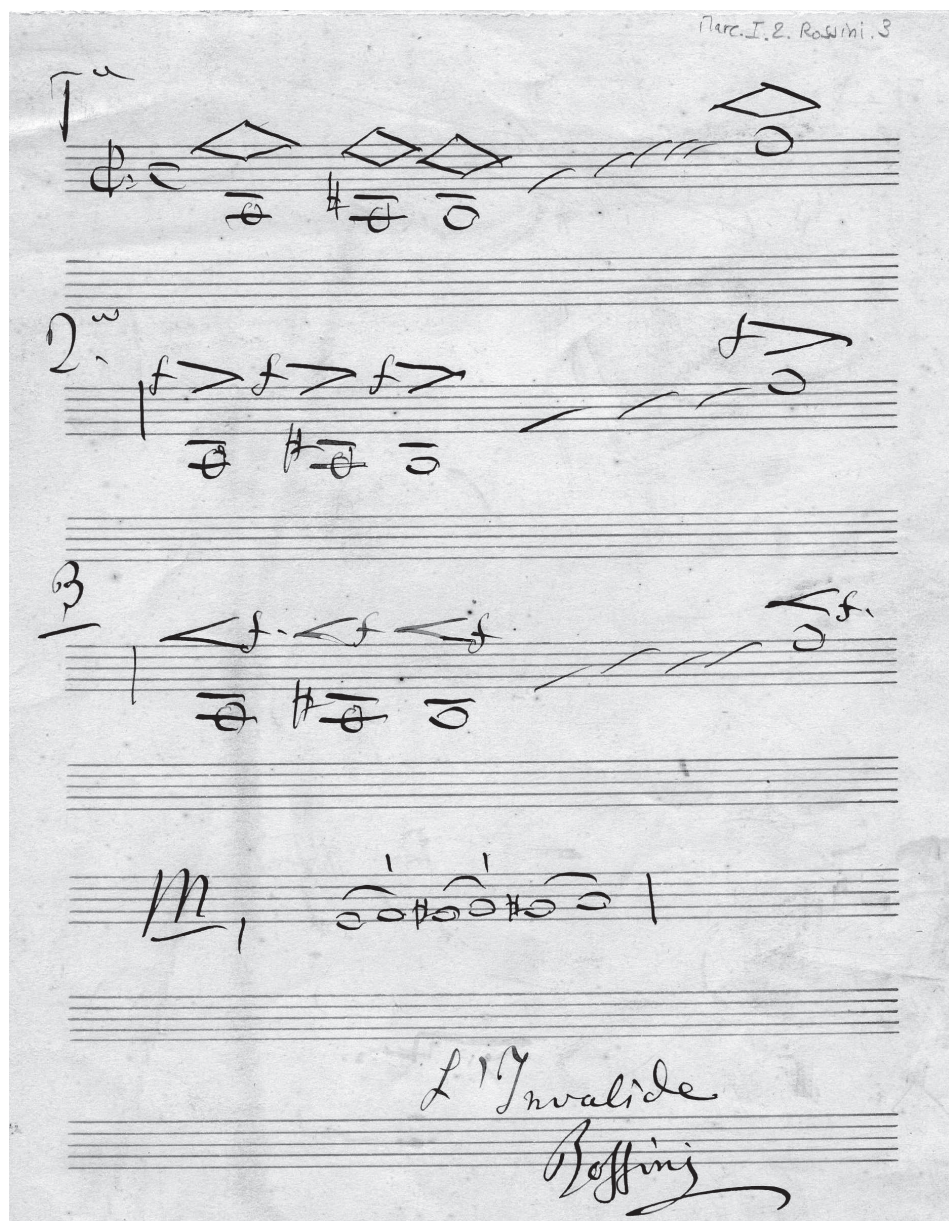 Marc. I. 2. Rossini. 3
1ª
2.ª
f f f f
3
f. f f f.
M
L'Invalide
Rossini